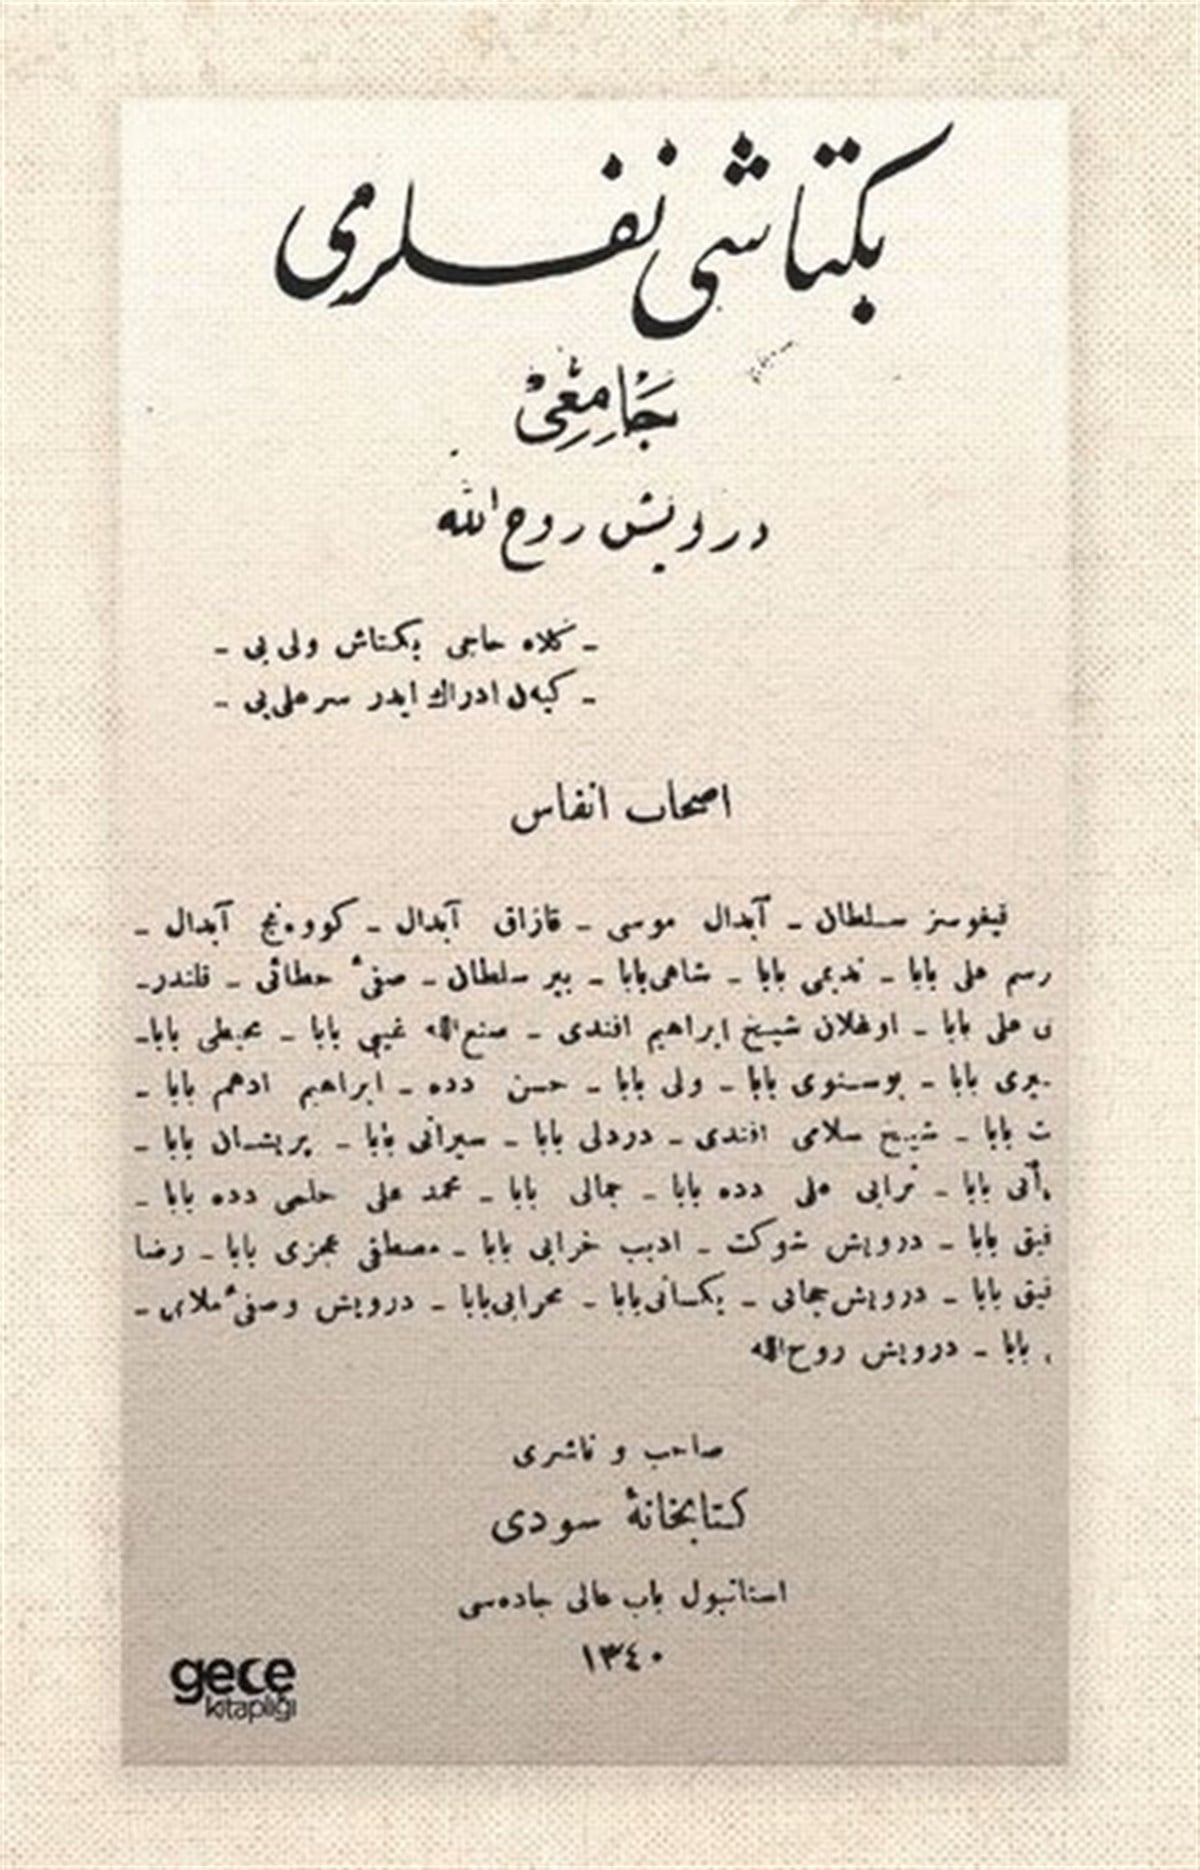 بكتاشی نفسلری
جامعی
درویش روح الله
ـ كلاه حاجی بكتاش ولی یی ـ
ـ كیه‌ن ادراك ایدر سر علی یی ـ
اصحاب انفاس
قیغوسز سلطان ـ آبدال موسی ـ قازاق آبدال ـ كووه‌نج آبدال ـ
رسم علی بابا ـ ندیمی بابا ـ شاهی بابا ـ پیر سلطان ـ صفیٔ خطائی ـ قلندر ـ
علی بابا ـ اوغلان شیخ ابراهیم افندی ـ صنع الله غیبی بابا ـ محیطی بابا ـ
ـیری بابا ـ بوسنوی بابا ـ ولی بابا ـ حسن دده ـ ابراهیم ادهم بابا ـ
ت بابا ـ شیخ سلامی افندی ـ دردلی بابا ـ سیرانی بابا ـ پریشان بابا ـ
أتی بابا ـ ترابی علی دده بابا ـ جمالی بابا ـ محمد علی حلمی دده بابا ـ
فیق بابا ـ درویش شوكت ـ ادیب خرابی بابا ـ مصطفی عجزی بابا ـ رضا
فیق بابا ـ درویش ـ یكسانی بابا ـ محرابی بابا ـ درویش وصفیٔ ملامی ـ
بابا ـ درویش روح الله
صاحب و ناشری
كتابخانهٔ سودی
استانبول باب عالی جاده‌سی
١٣٤٠
gece
kitaplığı